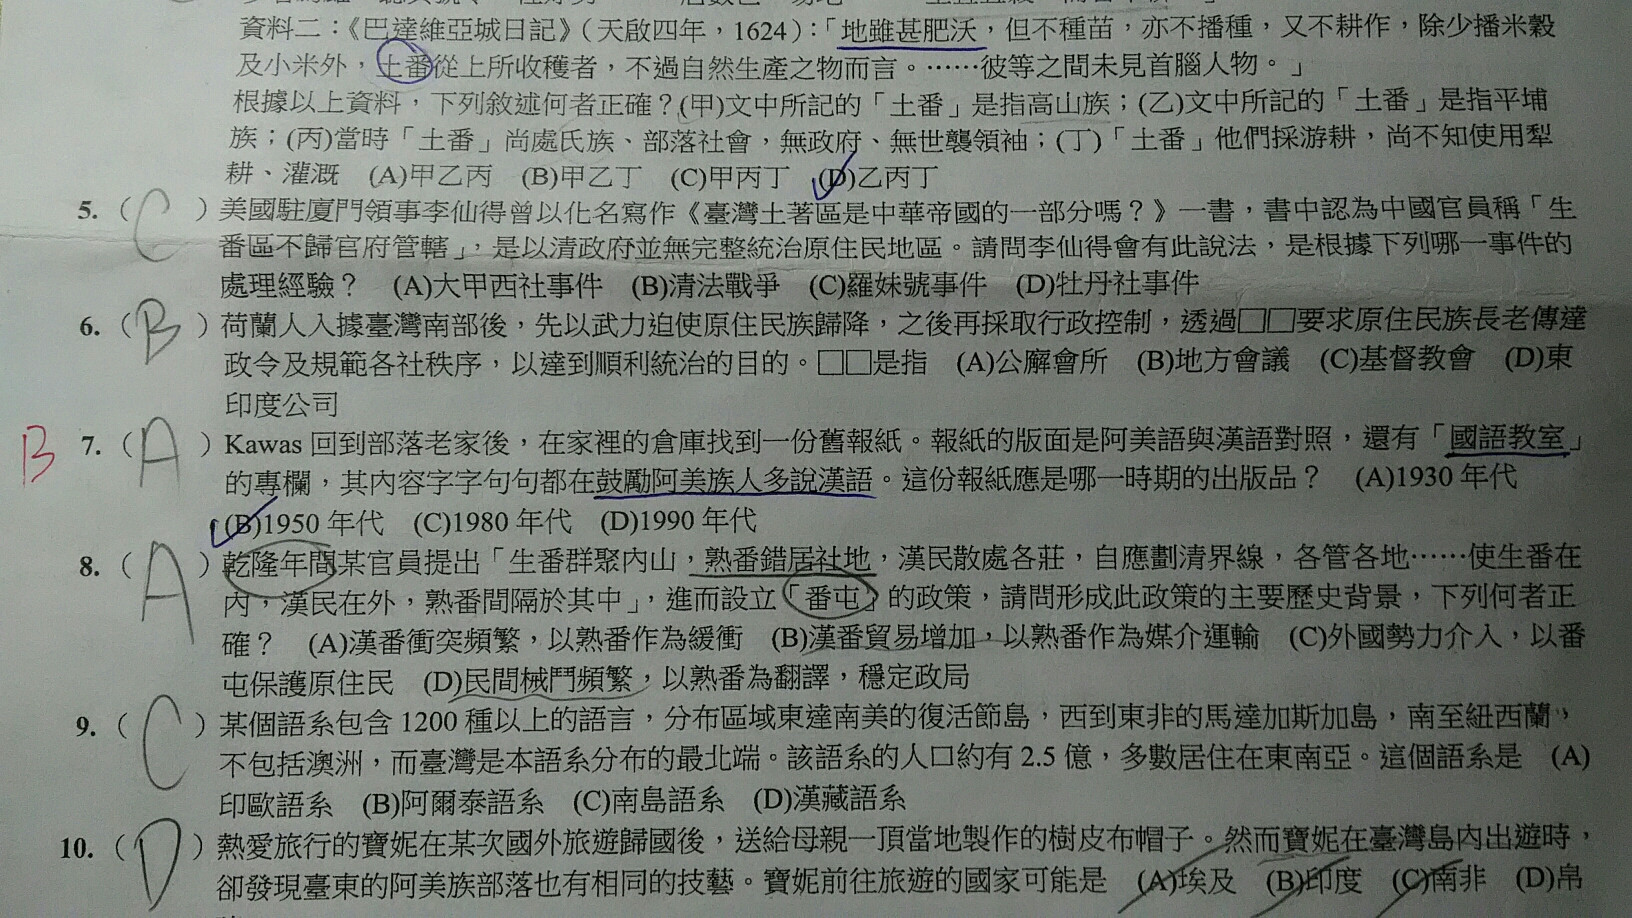 資料二：《巴達維亞城日記》（天啟四年，1624）：「地雖甚肥沃，但不種苗，亦不播種，又不耕作，除少播米穀
及小米外，土番從上所收穫者，不過自然生產之物而言。……彼等之間未見首腦人物。」
根據以上資料，下列敘述何者正確？(甲)文中所記的「土番」是指高山族；(乙)文中所記的「土番」是指平埔
族；(丙)當時「土番」尚處氏族、部落社會，無政府、無世襲領袖；(丁)「土番」他們採游耕，尚不知使用犁
耕、灌溉　(A)甲乙丙　(B)甲乙丁　(C)甲丙丁　(D)乙丙丁
5.（ C ）美國駐廈門領事李仙得曾以化名寫作《臺灣土著區是中華帝國的一部分嗎？》一書，書中認為中國官員稱「生
番區不歸官府管轄」，是以清政府並無完整統治原住民地區。請問李仙得會有此說法，是根據下列哪一事件的
處理經驗？　(A)大甲西社事件　(B)清法戰爭　(C)羅妹號事件　(D)牡丹社事件
6.（ B ）荷蘭人入據臺灣南部後，先以武力迫使原住民族歸降，之後再採取行政控制，透過□□要求原住民族長老傳達
政令及規範各社秩序，以達到順利統治的目的。□□是指　(A)公廨會所　(B)地方會議　(C)基督教會　(D)東
印度公司
B 7.（ A ）Kawas 回到部落老家後，在家裡的倉庫找到一份舊報紙。報紙的版面是阿美語與漢語對照，還有「國語教室」
的專欄，其內容字字句句都在鼓勵阿美族人多說漢語。這份報紙應是哪一時期的出版品？　(A)1930 年代
(B)1950 年代　(C)1980 年代　(D)1990 年代
8.（ A ）乾隆年間某官員提出「生番群聚內山，熟番錯居社地，漢民散處各莊，自應劃清界線，各管各地……使生番在
內，漢民在外，熟番間隔於其中」，進而設立「番屯」的政策，請問形成此政策的主要歷史背景，下列何者正
確？　(A)漢番衝突頻繁，以熟番作為緩衝　(B)漢番貿易增加，以熟番作為媒介運輸　(C)外國勢力介入，以番
屯保護原住民　(D)民間械鬥頻繁，以熟番為翻譯，穩定政局
9.（ C ）某個語系包含 1200 種以上的語言，分布區域東達南美的復活節島，西到東非的馬達加斯加島，南至紐西蘭，
不包括澳洲，而臺灣是本語系分布的最北端。該語系的人口約有 2.5 億，多數居住在東南亞。這個語系是　(A)
印歐語系　(B)阿爾泰語系　(C)南島語系　(D)漢藏語系
10.（ D ）熱愛旅行的寶妮在某次國外旅遊歸國後，送給母親一頂當地製作的樹皮布帽子。然而寶妮在臺灣島內出遊時，
卻發現臺東的阿美族部落也有相同的技藝。寶妮前往旅遊的國家可能是　(A)埃及　(B)印度　(C)南非　(D)帛